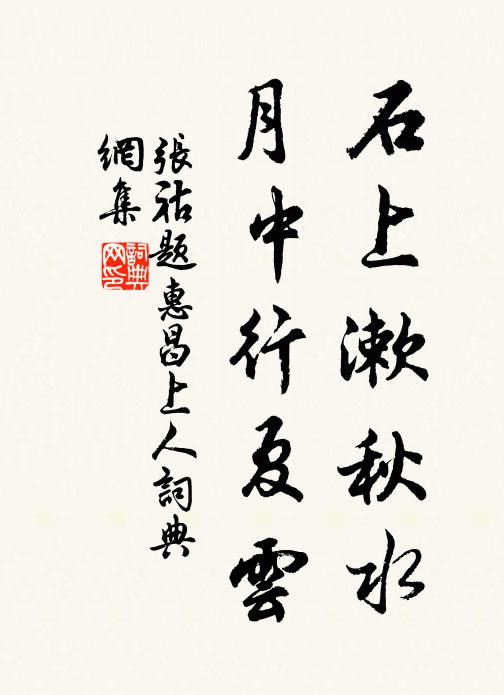 石上漱秋水
月中行夏雲
張祜題惠昌上人詞典
網集
詞典
网印